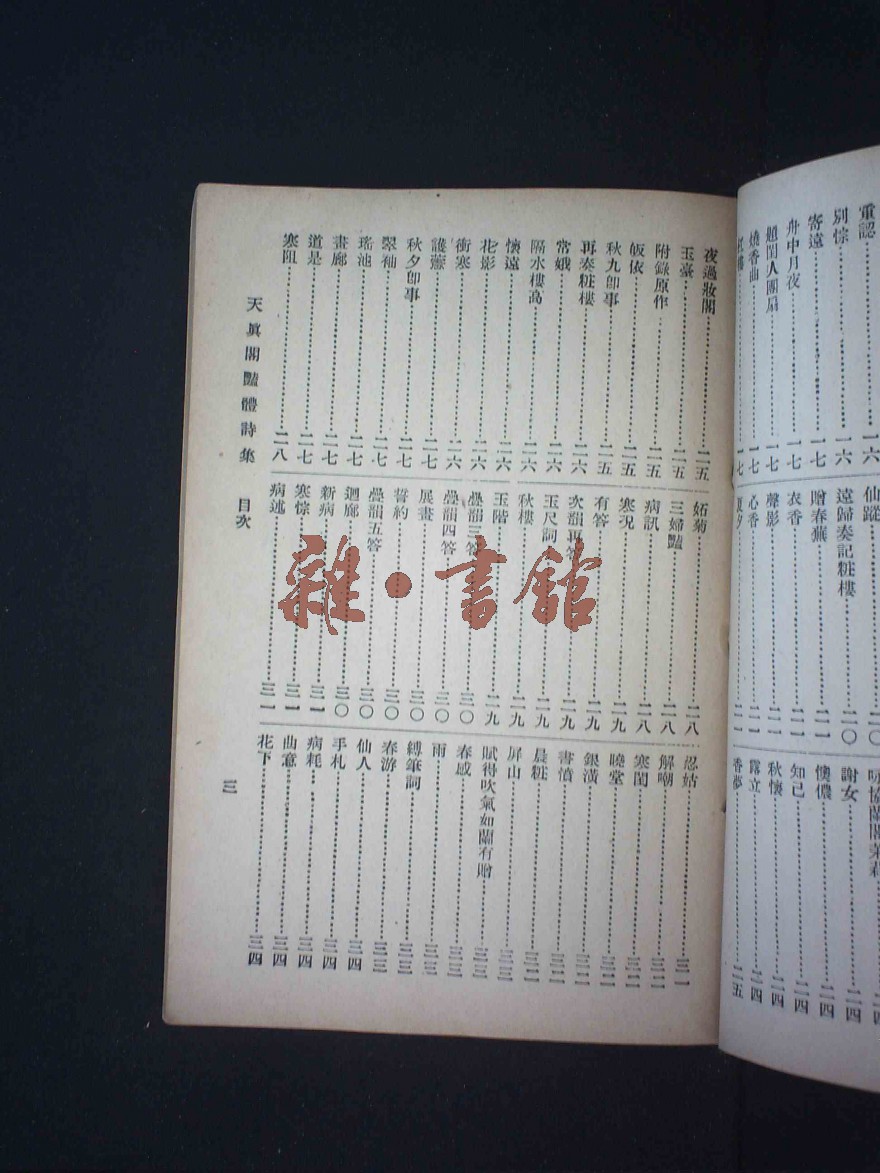 重認……一六
別悰……一六
寄遠……一七
舟中月夜……一七
題閨人團扇……一七
燒香曲……一七
一七
仙蹤……二〇
遠歸奏記粧樓……二〇
贈春蕪……二一
衣香……二一
聲影……二一
心香……二一
夏夕……二一
二四
謝女……二四
知己……二四
懊儂……二四
秋懷……二四
露立……二四
香夢……二五
夜過妝閣……二五
玉臺……二五
附錄原作……二五
皈依……二五
秋九卽事……二五
再奏粧樓……二六
常娥……二六
隔水樓高……二六
懷遠……二六
花影……二六
衝寒……二六
護蕙……二七
秋夕卽事……二七
翠袖……二七
瑤池……二七
畫廊……二七
道是……二七
寒阻……二八
妬菊……二八
三婦豔……二八
病訊……二八
寒況……二九
有答……二九
次韻再答……二九
玉尺詞……二九
秋樓……二九
玉階……二九
疊韻三答……三〇
疊韻四答……三〇
展畫……三〇
誓約……三〇
疊韻五答……三〇
迴廊……三〇
新病……三一
寒悰……三一
病述……三一
忍姑……三二
解嘲……三二
寒閨……三二
曉堂……三二
銀潢……三二
書憤……三二
晨粧……三二
屏山……三三
賦得吹氣如蘭有贈……三三
春感……三三
雨……三三
縛筆詞……三三
春游……三三
仙人……三四
手札……三四
病耗……三四
曲意……三四
花下……三四
天眞閣豔體詩集　目次
三
雜·書館